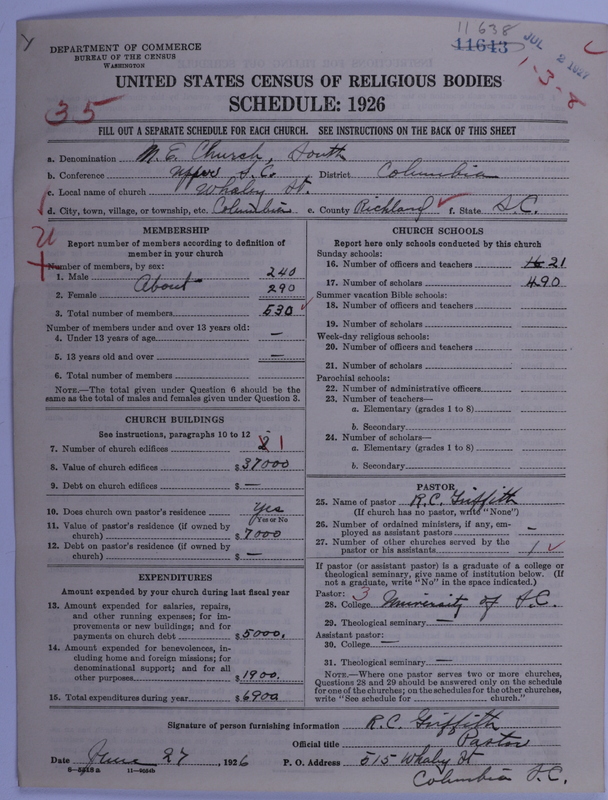 11638
11643
JUL 2 1927
1-3-8
DEPARTMENT OF COMMERCE
BUREAU OF THE CENSUS
WASHINGTON
UNITED STATES CENSUS OF RELIGIOUS BODIES
SCHEDULE: 1926
35
FILL OUT A SEPARATE SCHEDULE FOR EACH CHURCH. SEE INSTRUCTIONS ON THE BACK OF THIS SHEET
a. Denomination M. E. Church, South
b. Conference Upper S.C. District Columbia
c. Local name of church Whaley St.
d. City, town, village, or township, etc. Columbia e. County Richland f. State S.C.
MEMBERSHIP
Report number of members according to definition of
member in your church
Number of members, by sex:
1. Male 240
About
2. Female 290
3. Total number of members 530
Number of members under and over 13 years old:
4. Under 13 years of age —
5. 13 years old and over —
6. Total number of members
NOTE.—The total given under Question 6 should be the
same as the total of males and females given under Question 3.
CHURCH BUILDINGS
See instructions, paragraphs 10 to 12
7. Number of church edifices 2 1
8. Value of church edifices $37000
9. Debt on church edifices $ —
10. Does church own pastor's residence Yes
Yes or No
11. Value of pastor's residence (if owned by
church) $7000
12. Debt on pastor's residence (if owned by
church) $ —
EXPENDITURES
Amount expended by your church during last fiscal year
13. Amount expended for salaries, repairs,
and other running expenses; for im-
provements or new buildings; and for
payments on church debt $5000.
14. Amount expended for benevolences, in-
cluding home and foreign missions; for
denominational support; and for all
other purposes $1900.
15. Total expenditures during year $6900
CHURCH SCHOOLS
Report here only schools conducted by this church
Sunday schools:
16. Number of officers and teachers 21
17. Number of scholars 490
Summer vacation Bible schools:
18. Number of officers and teachers
19. Number of scholars
Week-day religious schools:
20. Number of officers and teachers
21. Number of scholars
Parochial schools:
22. Number of administrative officers
23. Number of teachers—
a. Elementary (grades 1 to 8)
b. Secondary
24. Number of scholars—
a. Elementary (grades 1 to 8)
b. Secondary
PASTOR
25. Name of pastor R.C. Griffith
(If church has no pastor, write "None")
26. Number of ordained ministers, if any, em-
ployed as assistant pastors —
27. Number of other churches served by the
pastor or his assistants 1
If pastor (or assistant pastor) is a graduate of a college or
theological seminary, give name of institution below. (If
not a graduate, write "No" in the space indicated.)
Pastor: 3
28. College University of S.C.
29. Theological seminary —
Assistant pastor:
30. College —
31. Theological seminary —
NOTE.—Where one pastor serves two or more churches,
Questions 28 and 29 should be answered only on the schedule
for one of the churches; on the schedules for the other churches,
write "See schedule for church."
Signature of person furnishing information R.C. Griffith
Official title Pastor
Date June 27, 1926 P. O. Address 515 Whaley St
Columbia S.C.